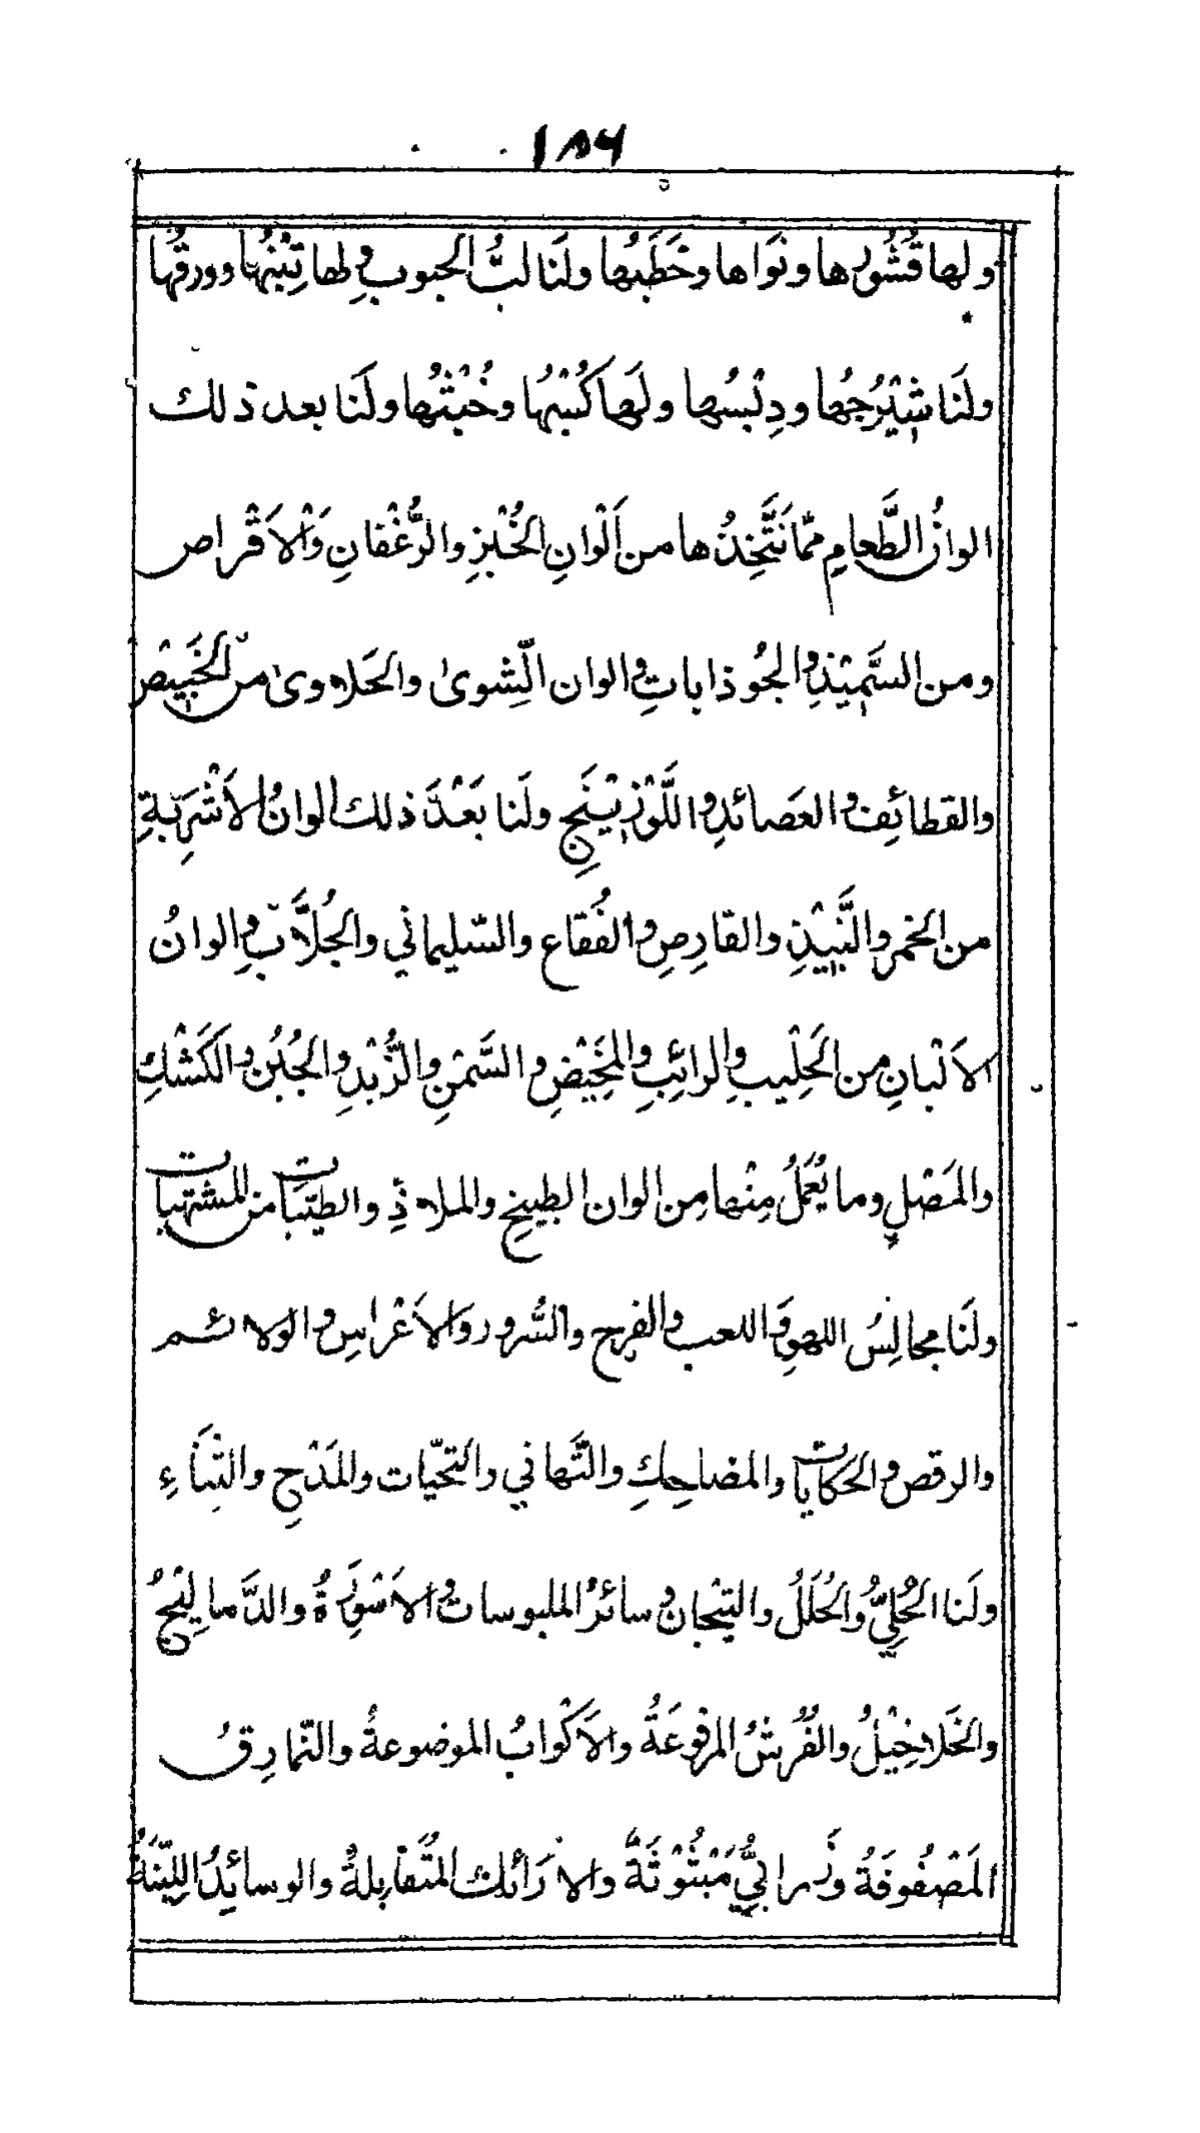 ١٨٦
ولها قُشُورها ونَوَاها وحَطَبُها ولَنَا لبُّ الحبوبِ ولها تِبْنُها وورقُها
ولَنَا شِيْرَجُها ودِبْسُها ولَها كُسْبُها وخُبْثُها ولَنَا بعد ذلك
الوانُ الطَّعامِ ممّا نَتَّخِذُها من اَلْوانِ الخُبْزِ والرُّغْفانِ وَالاَقْراص
ومن السَّمِيْذِ والجُوذاباتِ والوان الشِوىٰ والحَلاوىٰ من الخَبِيْص
والقطائِفِ والعَصائدِ واللَّوْزِيْنَجِ ولَنا بَعْدَ ذلك الوانُ الاَشْرِبَةِ
من الخمرِ والنَّبِيْذِ والقارِصِ والفُقاع والسّليماني والجُلاَّبِ والوانُ
الاَلْبانِ من الحَلِيْبِ والرائِبِ والمَخِيْضِ والسَّمْنِ والزُّبْدِ والجُبُنِ والكَشْكِ
والمَصْلِ وما يُعْمَلُ مِنْها مِن الوان الطبيخِ والملاذِّ والطيّبات من المشتهيات
ولَنَا مجالِسُ اللهوِ واللعب والفرح والسُّرور والاَعْراسِ والولائم
والرقص والحكايات والمضاحِكِ والتَّهاني والتحيّات والمَدْحِ والثَّنَاءِ
ولَنا الحُلِيُّ والحُلَلُ والتيْجان وسائرُ الملبوسات والاَسْوِرَةُ والدَّمالِيْجُ
والخَلاخِيْلُ والفُرُشُ المرفوعَةُ والاَكْوابُ الموضوعةُ والنّمارِقُ
المَصْفُوفَةُ وزَرابِيُّ مَبْثُوْثَةٌ والارَائك المُتَقابِلةُ والوسائِدُ الليّنَةُ